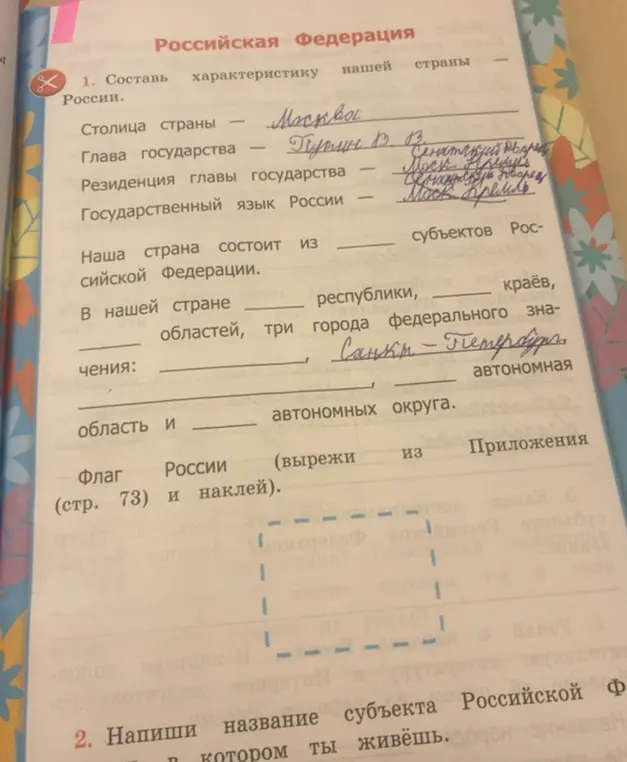 Российская Федерация
1. Составь характеристику нашей страны —
России.
Столица страны — Москва
Глава государства — Путин В. В.
Сенатский дворец
Резиденция главы государства — Моск Кремль
Сенатский дворец
Государственный язык России — Моск Кремль
Наша страна состоит из ______ субъектов Рос-
сийской Федерации.
В нашей стране ______ республики, ______ краёв,
______ областей, три города федерального зна-
чения: ______________, Санкт-Петербург,
______________________________, ______ автономная
область и ______ автономных округа.
Флаг России (вырежи из Приложения
(стр. 73) и наклей).
2. Напиши название субъекта Российской Ф
в котором ты живёшь.